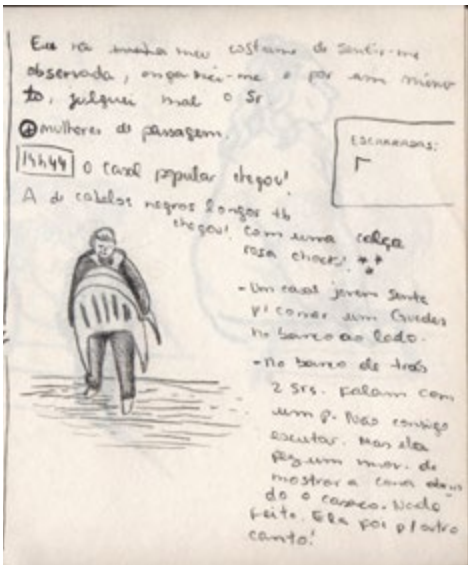 Eu meu costume de sentir-me
observada, enganei-me e por um minu
to, julguei mal o Sr
⊕ mulheres de passagem.
ESCARRADAS:
14h44 O casal popular chegou!
A de cabelos negros longos tb
chegou! Com uma calça
rosa chock!
- Um casal jovem senta
p/ comer um Guedes
no banco ao lado.
- No banco de trás
2 Srs. falam com
um p. Não consigo
escutar. Mas ela
fez um mov. de
mostrar a cara
do o casaco. Nada
feito. Ela foi p/ outro
canto!